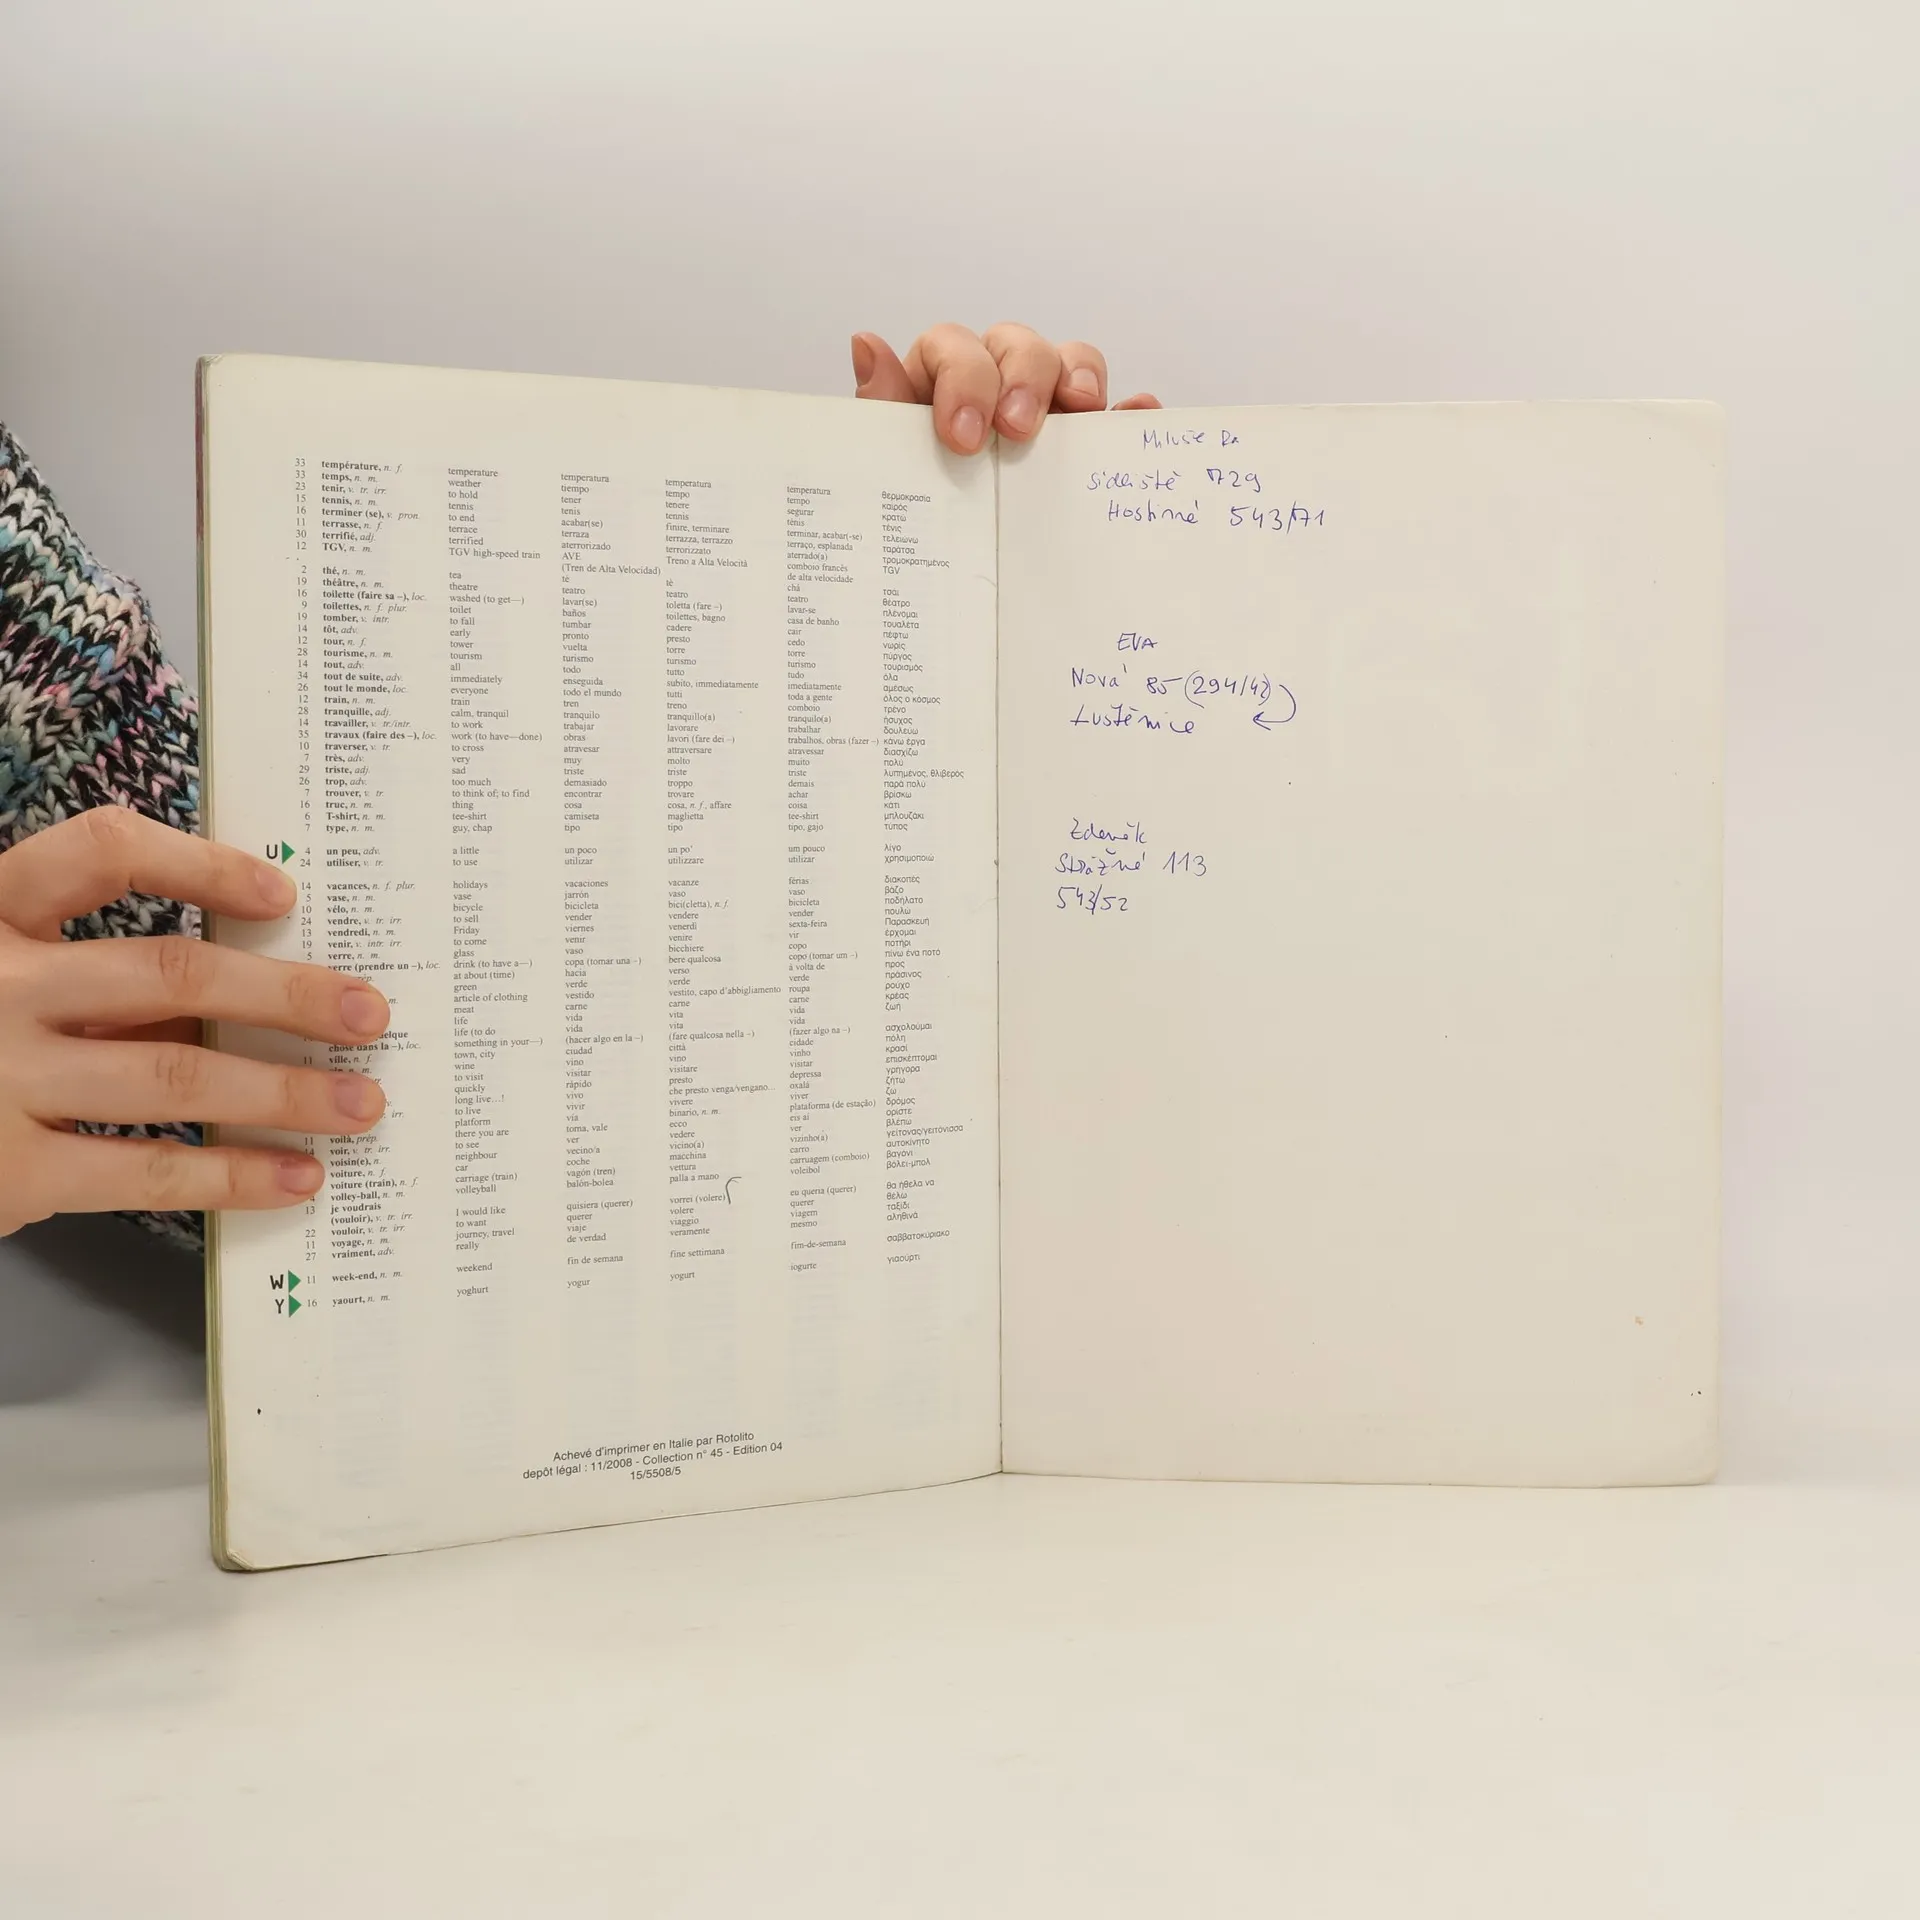 33 température, n. f. temperature temperatura temperatura temperatura θερμοκρασία
33 temps, n. m. weather tiempo tempo tempo καιρός
23 tenir, v. tr. irr. to hold tener tenere segurar κρατώ
15 tennis, n. m. tennis tenis tennis ténis τένις
16 terminer (se), v. pron. to end acabar(se) finire, terminare terminar, acabar(-se) τελειώνω
11 terrasse, n. f. terrace terraza terrazza, terrazzo terraço, esplanada ταράτσα
30 terrifié, adj. terrified aterrorizado terrorizzato aterrado(a) τρομοκρατημένος
12 TGV, n. m. TGV high-speed train AVE Treno a Alta Velocità comboio francês TGV
(Tren de Alta Velocidad) de alta velocidade
2 thé, n. m. tea té tè chá τσάι
19 théâtre, n. m. theatre teatro teatro teatro θέατρο
16 toilette (faire sa –), loc. washed (to get—) lavar(se) toletta (fare –) lavar-se πλένομαι
9 toilettes, n. f. plur. toilet baños toilettes, bagno casa de banho τουαλέτα
19 tomber, v. intr. to fall tumbar cadere cair πέφτω
14 tôt, adv. early pronto presto cedo νωρίς
12 tour, n. f. tower vuelta torre torre πύργος
28 tourisme, n. m. tourism turismo turismo turismo τουρισμός
14 tout, adv. all todo tutto tudo όλα
34 tout de suite, adv. immediately enseguida subito, immediatamente imediatamente αμέσως
26 tout le monde, loc. everyone todo el mundo tutti toda a gente όλος ο κόσμος
12 train, n. m. train tren treno comboio τρένο
28 tranquille, adj. calm, tranquil tranquilo tranquillo(a) tranquilo(a) ήσυχος
14 travailler, v. tr./intr. to work trabajar lavorare trabalhar δουλεύω
35 travaux (faire des –), loc. work (to have—done) obras lavori (fare dei –) trabalhos, obras (fazer –) κάνω έργα
10 traverser, v. tr. to cross atravesar attraversare atravessar διασχίζω
7 très, adv. very muy molto muito πολύ
29 triste, adj. sad triste triste triste λυπημένος, θλιβερός
26 trop, adv. too much demasiado troppo demais παρά πολύ
7 trouver, v. tr. to think of; to find encontrar trovare achar βρίσκω
16 truc, n. m. thing cosa cosa, n. f., affare coisa κάτι
6 T-shirt, n. m. tee-shirt camiseta maglietta tee-shirt μπλουζάκι
7 type, n. m. guy, chap tipo tipo tipo, gajo τύπος
U 4 un peu, adv. a little un poco un po' um pouco λίγο
24 utiliser, v. tr. to use utilizar utilizzare utilizar χρησιμοποιώ
14 vacances, n. f. plur. holidays vacaciones vacanze férias διακοπές
5 vase, n. m. vase jarrón vaso vaso βάζο
10 vélo, n. m. bicycle bicicleta bici(cletta), n. f. bicicleta ποδήλατο
24 vendre, v. tr. irr. to sell vender vendere vender πουλώ
13 vendredi, n. m. Friday viernes venerdì sexta-feira Παρασκευή
19 venir, v. intr. irr. to come venir venire vir έρχομαι
5 verre, n. m. glass vaso bicchiere copo ποτήρι
verre (prendre un –), loc. drink (to have a—) copa (tomar una –) bere qualcosa copo (tomar um –) πίνω ένα ποτό
prép. at about (time) hacia verso à volta de προς
green verde verde verde πράσινος
m. article of clothing vestido vestito, capo d'abbigliamento roupa ρούχο
meat carne carne carne κρέας
life vida vita vida ζωή
quelque life (to do vida vita vida
chose dans la –), loc. something in your—) (hacer algo en la –) (fare qualcosa nella –) (fazer algo na –) ασχολούμαι
11 ville, n. f. town, city ciudad città cidade πόλη
n. m. wine vino vino vinho κρασί
to visit visitar visitare visitar επισκέπτομαι
quickly rápido presto depressa γρήγορα
long live...! vivo che presto venga/vengano... oxalá ζήτω
irr. to live vivir vivere viver ζω
platform vía binario, n. m. plataforma (de estação) δρόμος
11 voilà, prép. there you are toma, vale ecco eis aí ορίστε
14 voir, v. tr. irr. to see ver vedere ver βλέπω
voisin(e), n. neighbour vecino/a vicino(a) vizinho(a) γείτονας/γειτόνισσα
voiture, n. f. car coche macchina carro αυτοκίνητο
voiture (train), n. f. carriage (train) vagón (tren) vettura carruagem (comboio) βαγόνι
4 volley-ball, n. m. volleyball balón-bolea palla a mano voleibol βόλεϊ-μπολ
13 je voudrais
(vouloir), v. tr. irr. I would like quisiera (querer) vorrei (volere) eu queria (querer) θα ήθελα να
22 vouloir, v. tr. irr. to want querer volere querer θέλω
11 voyage, n. m. journey, travel viaje viaggio viagem ταξίδι
27 vraiment, adv. really de verdad veramente mesmo αληθινά
W 11 week-end, n. m. weekend fin de semana fine settimana fim-de-semana σαββατοκύριακο
Y 16 yaourt, n. m. yoghurt yogur yogurt iogurte γιαούρτι
Achevé d'imprimer en Italie par Rotolito
depôt légal : 11/2008 - Collection n° 45 - Edition 04
15/5508/5
Miluše Ra
sídliště 729
Hostinné 543/71
EVA
Nová 85 (294/42)
Luštěnice
Zdeněk
Strážné 113
543/52